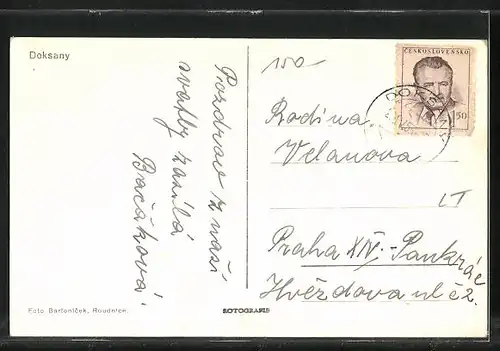 Doksany
Pozdrav z naší
svatby zasílá
Bačáková
Foto Bartoníček, Roudnice.
ROTOGRAFIE
150
ČESKOSLOVENSKO
1.50
DOKSANY
Rodina
Velanova
LT
Praha XIV. - Pankrác
Hvězdova ul č 2.